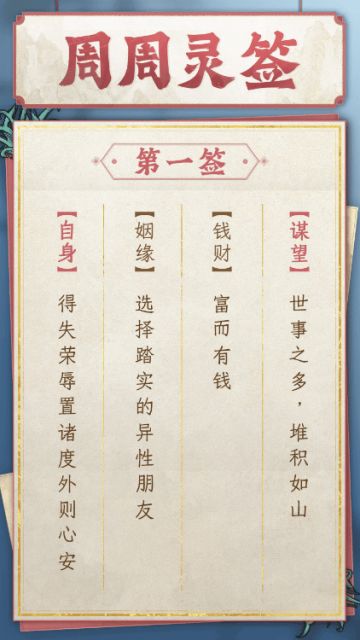 周周灵签
第一签
【谋望】
世事之多，堆积如山
【钱财】
富而有钱
【姻缘】
选择踏实的异性朋友
【自身】
得失荣辱置诸度外则心安